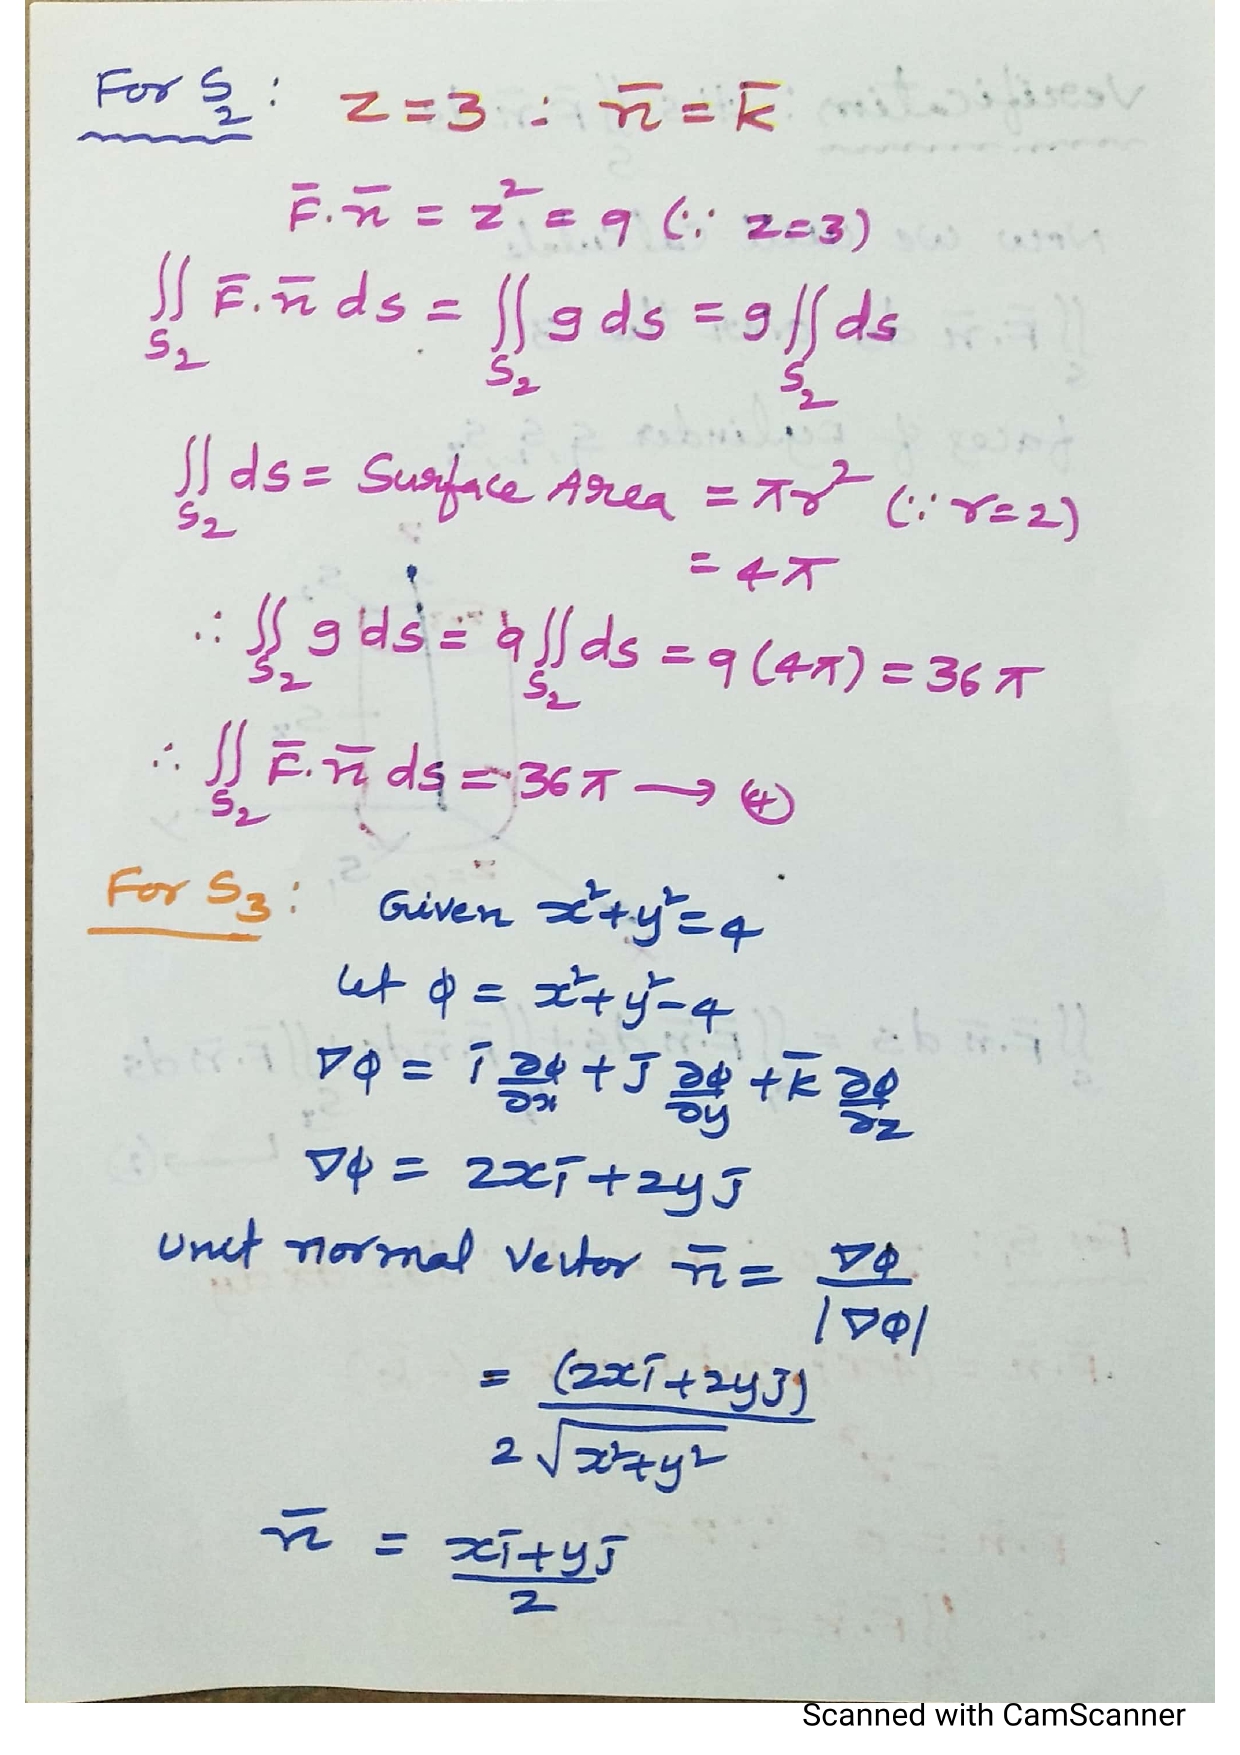 For S₂ : z = 3 ∴ n̄ = k̄
F̄.n̄ = z² = 9 (∵ z=3)
∬_S₂ F̄.n̄ ds = ∬_S₂ 9 ds = 9 ∬_S₂ ds
∬_S₂ ds = Surface Area = πr² (∵ r=2)
= 4π
∴ ∬_S₂ 9 ds = 9 ∬_S₂ ds = 9 (4π) = 36 π
∴ ∬_S₂ F̄.n̄ ds = 36 π → ④
For S₃ : Given x²+y²=4
Let ϕ = x²+y²-4
∇ϕ = ī ∂ϕ/∂x + j̄ ∂ϕ/∂y + k̄ ∂ϕ/∂z
∇ϕ = 2xī + 2yj̄
Unit normal Vector n̄ = ∇ϕ/|∇ϕ|
= (2xī+2yj̄)/2√x²+y²
n̄ = xī+yj̄/2
Scanned with CamScanner